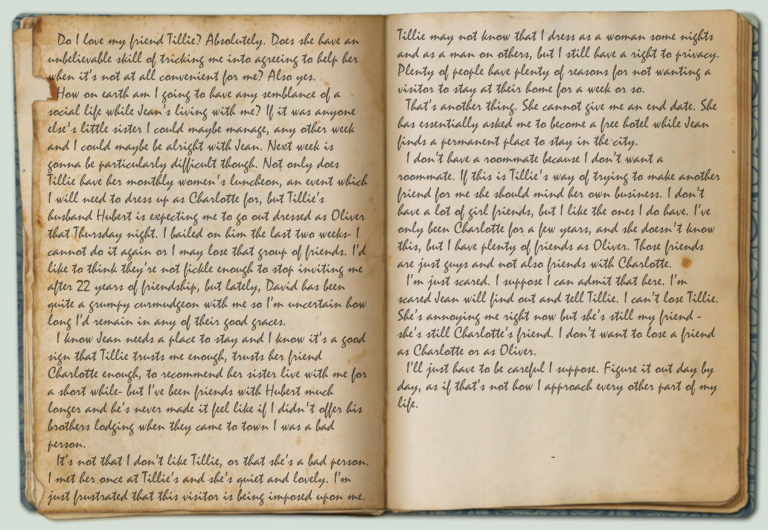 Do I love my friend Tillie? Absolutely. Does she have an
unbelievable skill of tricking me into agreeing to help her
when it's not at all convenient for me? Also yes.
How on earth am I going to have any semblance of a
social life while Jean's living with me? If it was anyone
else's little sister I could maybe manage, any other week
and I could maybe be alright with Jean. Next week is
gonna be particularly difficult though. Not only does
Tillie have her monthly women's luncheon, an event which
I will need to dress up as Charlotte for, but Tillie's
husband Hubert is expecting me to go out dressed as Oliver
that Thursday night. I bailed on him the last two weeks- I
cannot do it again or I may lose that group of friends. I'd
like to think they're not fickle enough to stop inviting me
after 22 years of friendship, but lately, David has been
quite a grumpy curmudgeon with me so I'm uncertain how
long I'd remain in any of their good graces.
I know Jean needs a place to stay and I know it's a good
sign that Tillie trusts me enough, trusts her friend
Charlotte enough, to recommend her sister live with me for
a short while- but I've been friends with Hubert much
longer and he's never made it feel like if I didn't offer his
brothers lodging when they came to town I was a bad
person.
It's not that I don't like Tillie, or that she's a bad person.
I met her once at Tillie's and she's quiet and lovely. I'm
just frustrated that this visitor is being imposed upon me.
Tillie may not know that I dress as a woman some nights
and as a man on others, but I still have a right to privacy.
Plenty of people have plenty of reasons for not wanting a
visitor to stay at their home for a week or so.
That's another thing. She cannot give me an end date. She
has essentially asked me to become a free hotel while Jean
finds a permanent place to stay in the city.
I don't have a roommate because I don't want a
roommate. If this is Tillie's way of trying to make another
friend for me she should mind her own business. I don't
have a lot of girl friends, but I like the ones I do have. I've
only been Charlotte for a few years, and she doesn't know
this, but I have plenty of friends as Oliver. Those friends
are just guys and not also friends with Charlotte.
I'm just scared. I suppose I can admit that here. I'm
scared Jean will find out and tell Tillie. I can't lose Tillie.
She's annoying me right now but she's still my friend -
she's still Charlotte's friend. I don't want to lose a friend
as Charlotte or as Oliver.
I'll just have to be careful I suppose. Figure it out day by
day, as if that's not how I approach every other part of my
life.
-